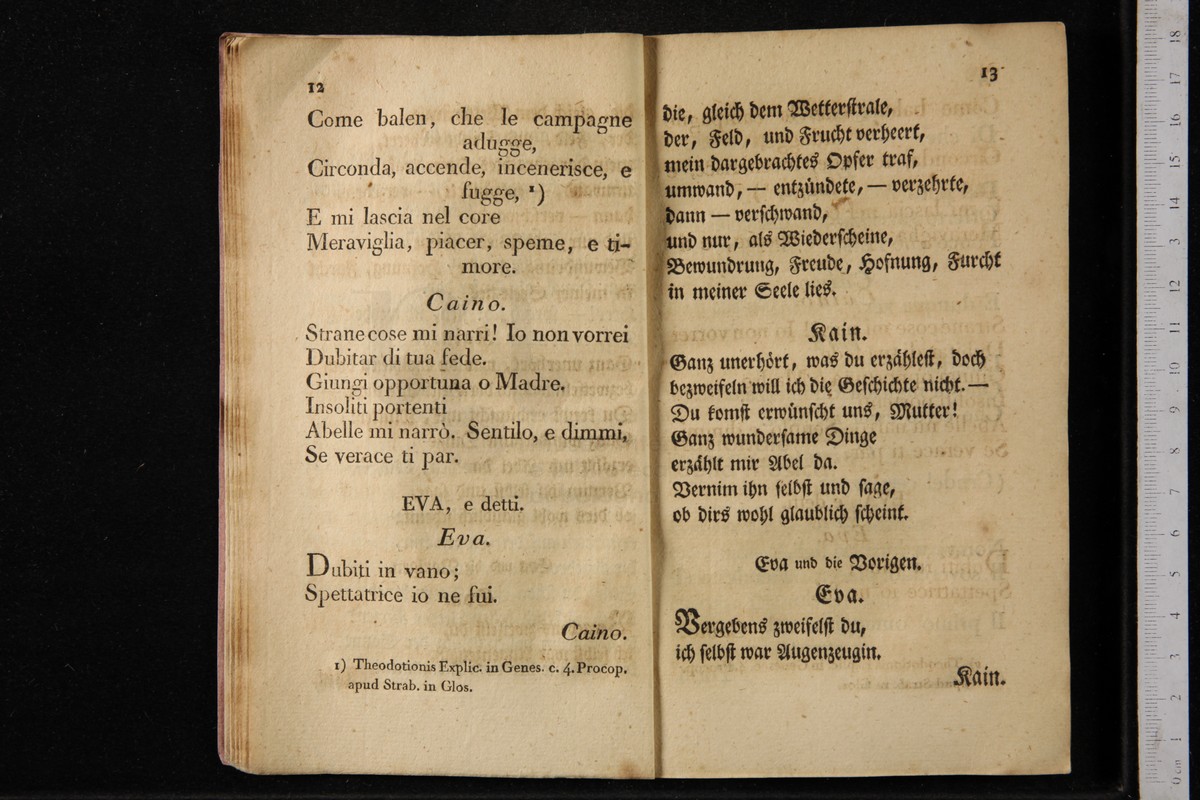 12
Come balen, che le campagne
adugge,
Circonda, accende, incenerisce, e
fugge, 1)
E mi lascia nel core
Meraviglia, piacer, speme, e ti-
more.
Caino.
Strane cose mi narri! Io non vorrei
Dubitar di tua fede.
Giungi opportuna o Madre.
Insoliti portenti
Abelle mi narrò. Sentilo, e dimmi,
Se verace ti par.
EVA, e detti.
Eva.
Dubiti in vano;
Spettatrice io ne fui.
Caino.
1) Theodotionis Explic. in Genes. c. 4. Procop.
apud Strab. in Glos.
13
die, gleich dem Wetterstrale,
der, Feld, und Frucht verheert,
mein dargebrachtes Opfer traf,
umwand, — entzündete, — verzehrte,
dann — verschwand,
und nur, als Wiederscheine,
Bewundrung, Freude, Hofnung, Furcht
in meiner Seele lies.
Kain.
Ganz unerhört, was du erzählest, doch
bezweifeln will ich die Geschichte nicht. —
Du komst erwünscht uns, Mutter!
Ganz wundersame Dinge
erzählt mir Abel da.
Vernim ihn selbst und sage,
ob dirs wohl glaublich scheint.
Eva und die Vorigen.
Eva.
Vergebens zweifelst du,
ich selbst war Augenzeugin.
Kain.
0 cm 1 2 3 4 5 6 7 8 9 10 11 12 13 14 15 16 17 18